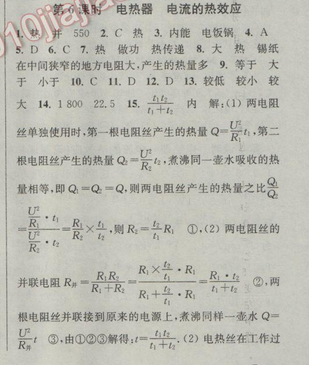 第6课时 电热器 电流的热效应
1. 热 并 550 2. C 热 3. 内能 电饭锅 4. A
5. D 6. C 7. 热 做功 热传递 8. 大 热 锡纸
在中间狭窄的地方电阻大,产生的热量多 9. 等于 大
于 小于 10. C 11. D 12. D 13. 较低 较小 较
大 14. 1 800 22.5 15. t₁t₂/(t₁+t₂) 内 解:(1) 两电阻
丝单独使用时,第一根电阻丝产生的热量 Q=U²/R₁ t₁,第二
根电阻丝产生的热量 Q₂=U²/R₂ t₂,煮沸同一壶水吸收的热
量相等,即 Q₁=Q₂=Q,则两电阻丝产生的热量之比 Q₁/Q₂
=(U²/R₁·t₁)/(U²/R₂·t₂)=R₂/R₁×t₁/t₂,则 R₂=t₂/t₁ R₁ ①,(2) 两电阻丝的
并联电阻 R并=R₁R₂/(R₁+R₂)=(R₁×t₂/t₁·R₁)/(R₁+t₂/t₁·R₁)=R₁·t₂/(t₁+t₂) ②,两
根电阻丝并联接到原来的电源上,煮沸同样一壶水 Q=
U²/R并 t ③,由①②③解得:t=t₁t₂/(t₁+t₂). (2) 电热丝在工作过